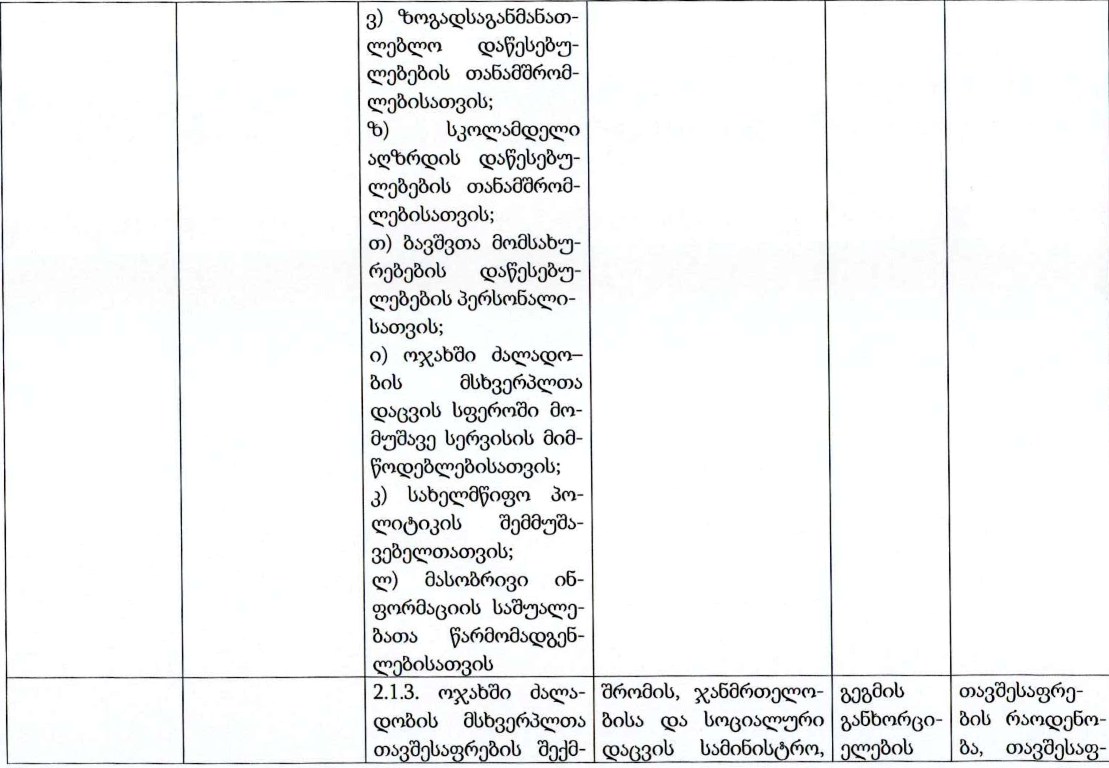 ვ) ზოგადსაგანმანათ-
ლებლო დაწესებუ-
ლებების თანამშრომ-
ლებისათვის;
ზ) სკოლამდელი
აღზრდის დაწესებუ-
ლებების თანამშრომ-
ლებისათვის;
თ) ბავშვთა მომსახუ-
რებების დაწესებუ-
ლებების პერსონალი-
სათვის;
ი) ოჯახში ძალადო–
ბის მსხვერპლთა
დაცვის სფეროში მო-
მუშავე სერვისის მიმ-
წოდებლებისათვის;
კ) სახელმწიფო პო-
ლიტიკის შემმუშა-
ვებელთათვის;
ლ) მასობრივი ინ-
ფორმაციის საშუალე-
ბათა წარმომადგენ-
ლებისათვის
2.1.3. ოჯახში ძალა-
დობის მსხვერპლთა
თავშესაფრების შექმ-
შრომის, ჯანმრთელო-
ბისა და სოციალური
დაცვის სამინისტრო,
გეგმის
განხორცი-
ელების
თავშესაფრე-
ბის რაოდენო-
ბა, თავშესაფ-